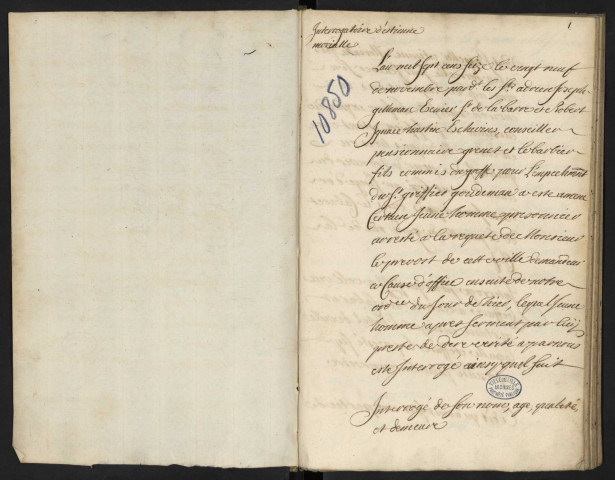 1
Interrogatoire d'estienne
morialle
10850
L'an mil sept cens seize le vingt neuf
de novembre pard. les srs adrien Joseph
quilleman Escuier sr de la barre et Robert
Ignace hattin Eschevins, conseiller
pensionnaire grenet et le barbier
fils commis du greffe pour l'empeschement
du sr greffier goudeman a esté amené
Certain Jeune homme prisonnier
arresté a la requete de Monsieur
le prevost de cette ville demandeur
a Cause d'office ensuite de notre
ordce du Jour de hier, lequel Jeune
homme apres serment par luy
presté de dire verité a par nous
esté Interrogé ainsy quil suit
Interrogé de son nom, age, qualité,
et demeure